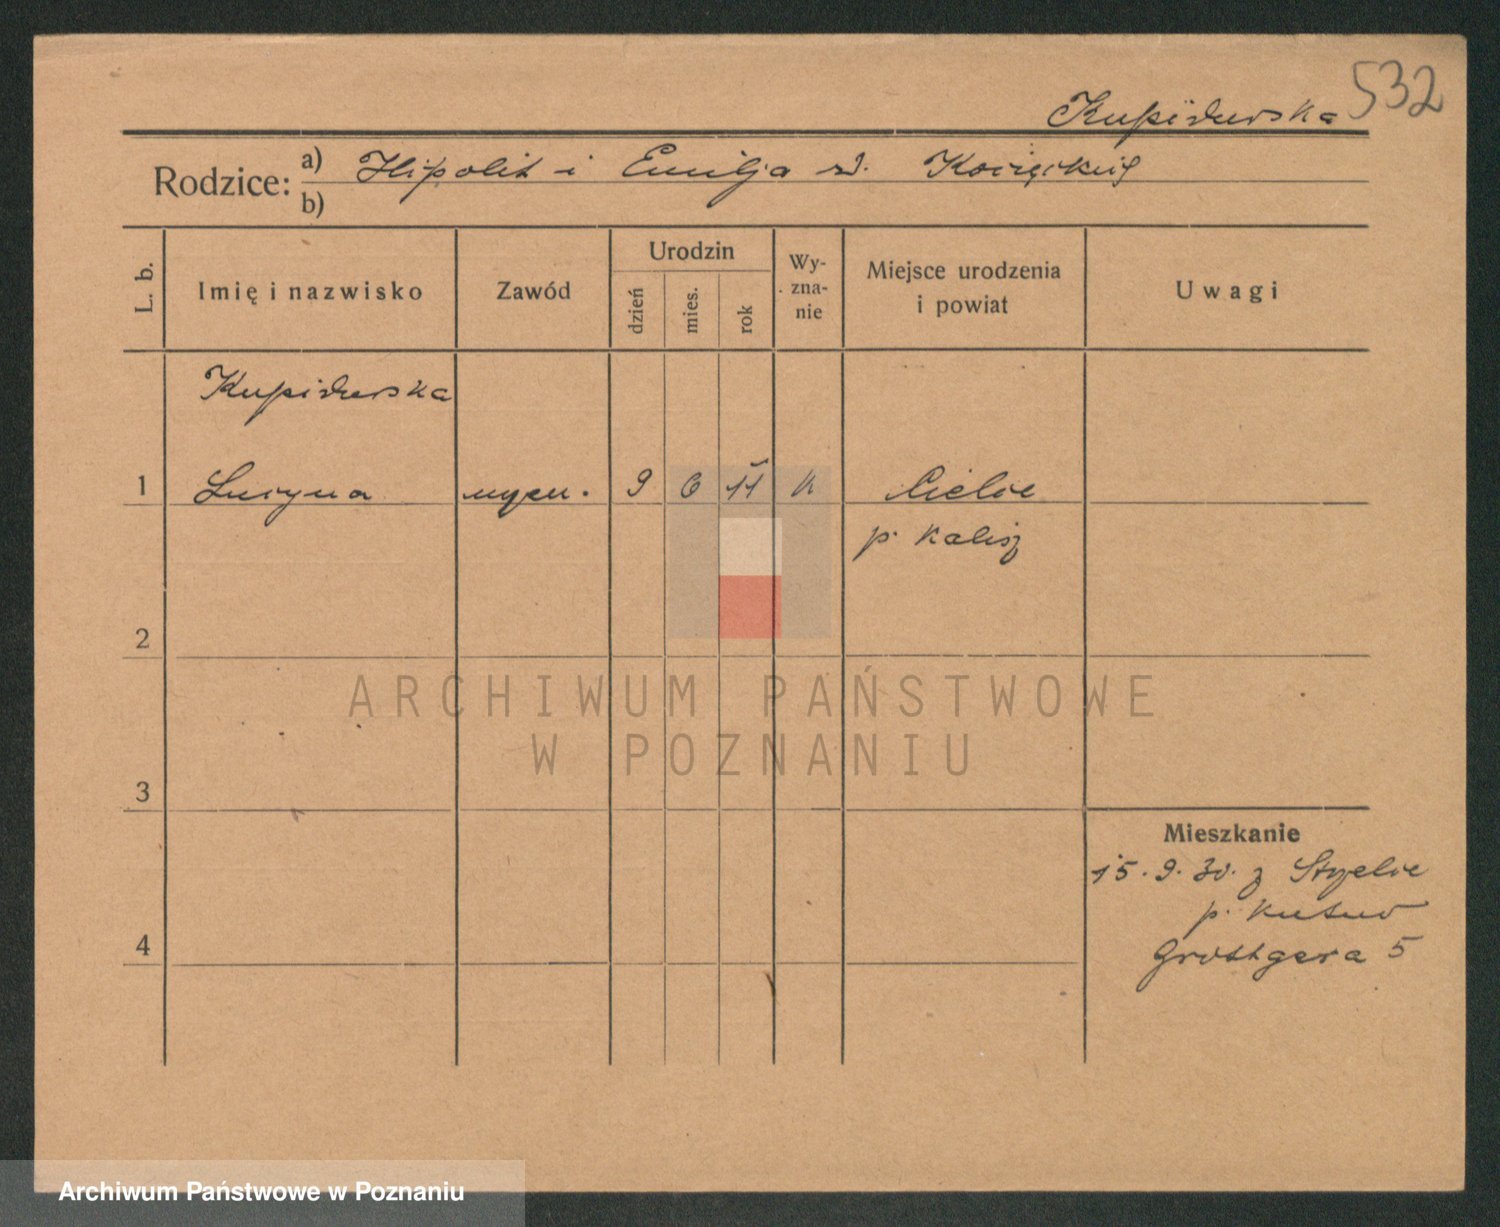 532
Kupidurska
Rodzice: a) Hipolit i Emilja
b)
L. b.
Imię i nazwisko
Zawód
Urodzin
dzień
mies.
rok
Wy-
zna-
nie
Miejsce urodzenia
i powiat
Uwagi
Kupidurska
1 Lucyna 9 6 11 k Cielce
p. Kalisz
2
ARCHIWUM PAŃSTWOWE
W POZNANIU
3
Mieszkanie
15.9.30. z Strzelce
p. Kutno
4
Grottgera 5
Archiwum Państwowe w Poznaniu